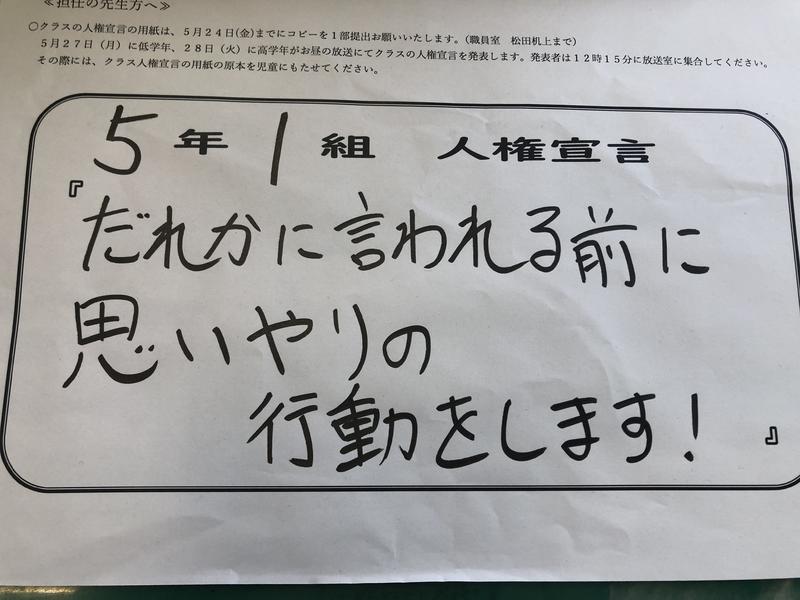 ≪担任の先生方へ≫
○クラスの人権宣言の用紙は、５月２４日(金)までにコピーを１部提出お願いいたします。（職員室　松田机上まで）
５月２７日（月）に低学年、２８日（火）に高学年がお昼の放送にてクラスの人権宣言を発表します。発表者は１２時１５分に放送室に集合してください。
その際には、クラス人権宣言の用紙の原本を児童にもたせてください。
5年1組　人権宣言
『だれかに言われる前に
思いやりの
行動をします！』